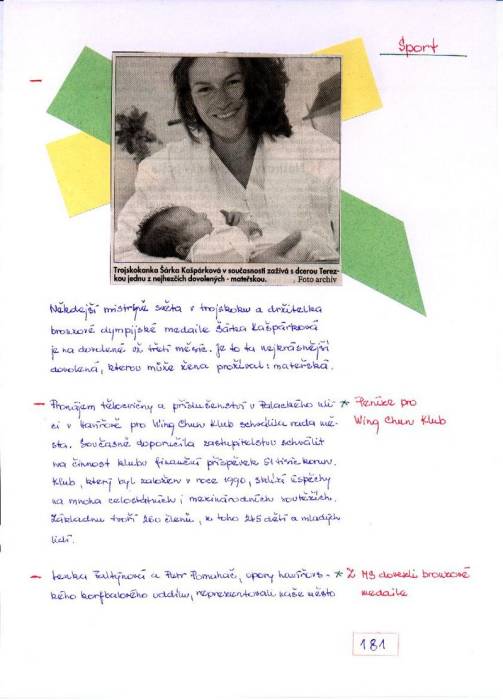 Šport
Trojskokanka Šárka Kašpárková v současnosti zažívá s dcerou Terez-
kou jednu z nejhezčích dovolených - mateřskou. Foto archiv
Někdejší mistryně světa v trojskoku a držitelka
bronzové olympijské medaile Šárka Kašpárková
je na dovolené už třetí měsíc. Je to ta nejkrásnější
dovolená, kterou může žena prožívat: mateřská.
– Pronájem tělocvičny a příslušenství v Palackého uli- * Peníze pro
ci v Havířově pro Wing Chun klub schválila rada mě- Wing Chun Klub
sta. Současně doporučila zastupitelstvu schválit
na činnost klubu finanční příspěvek 51 tisíc korun.
Klub, který byl založen v roce 1990, sklízí úspěchy
na mnoha celostátních i mezinárodních soutěžích.
Základnu tvoří 260 členů, z toho 245 dětí a mladých
lidí.
– Lenka Faltýnová a Petr Pomahač, opory havířovs- * Z MS dovezli bronzové
kého korfbalového oddílu, reprezentovali naše město medaile
181